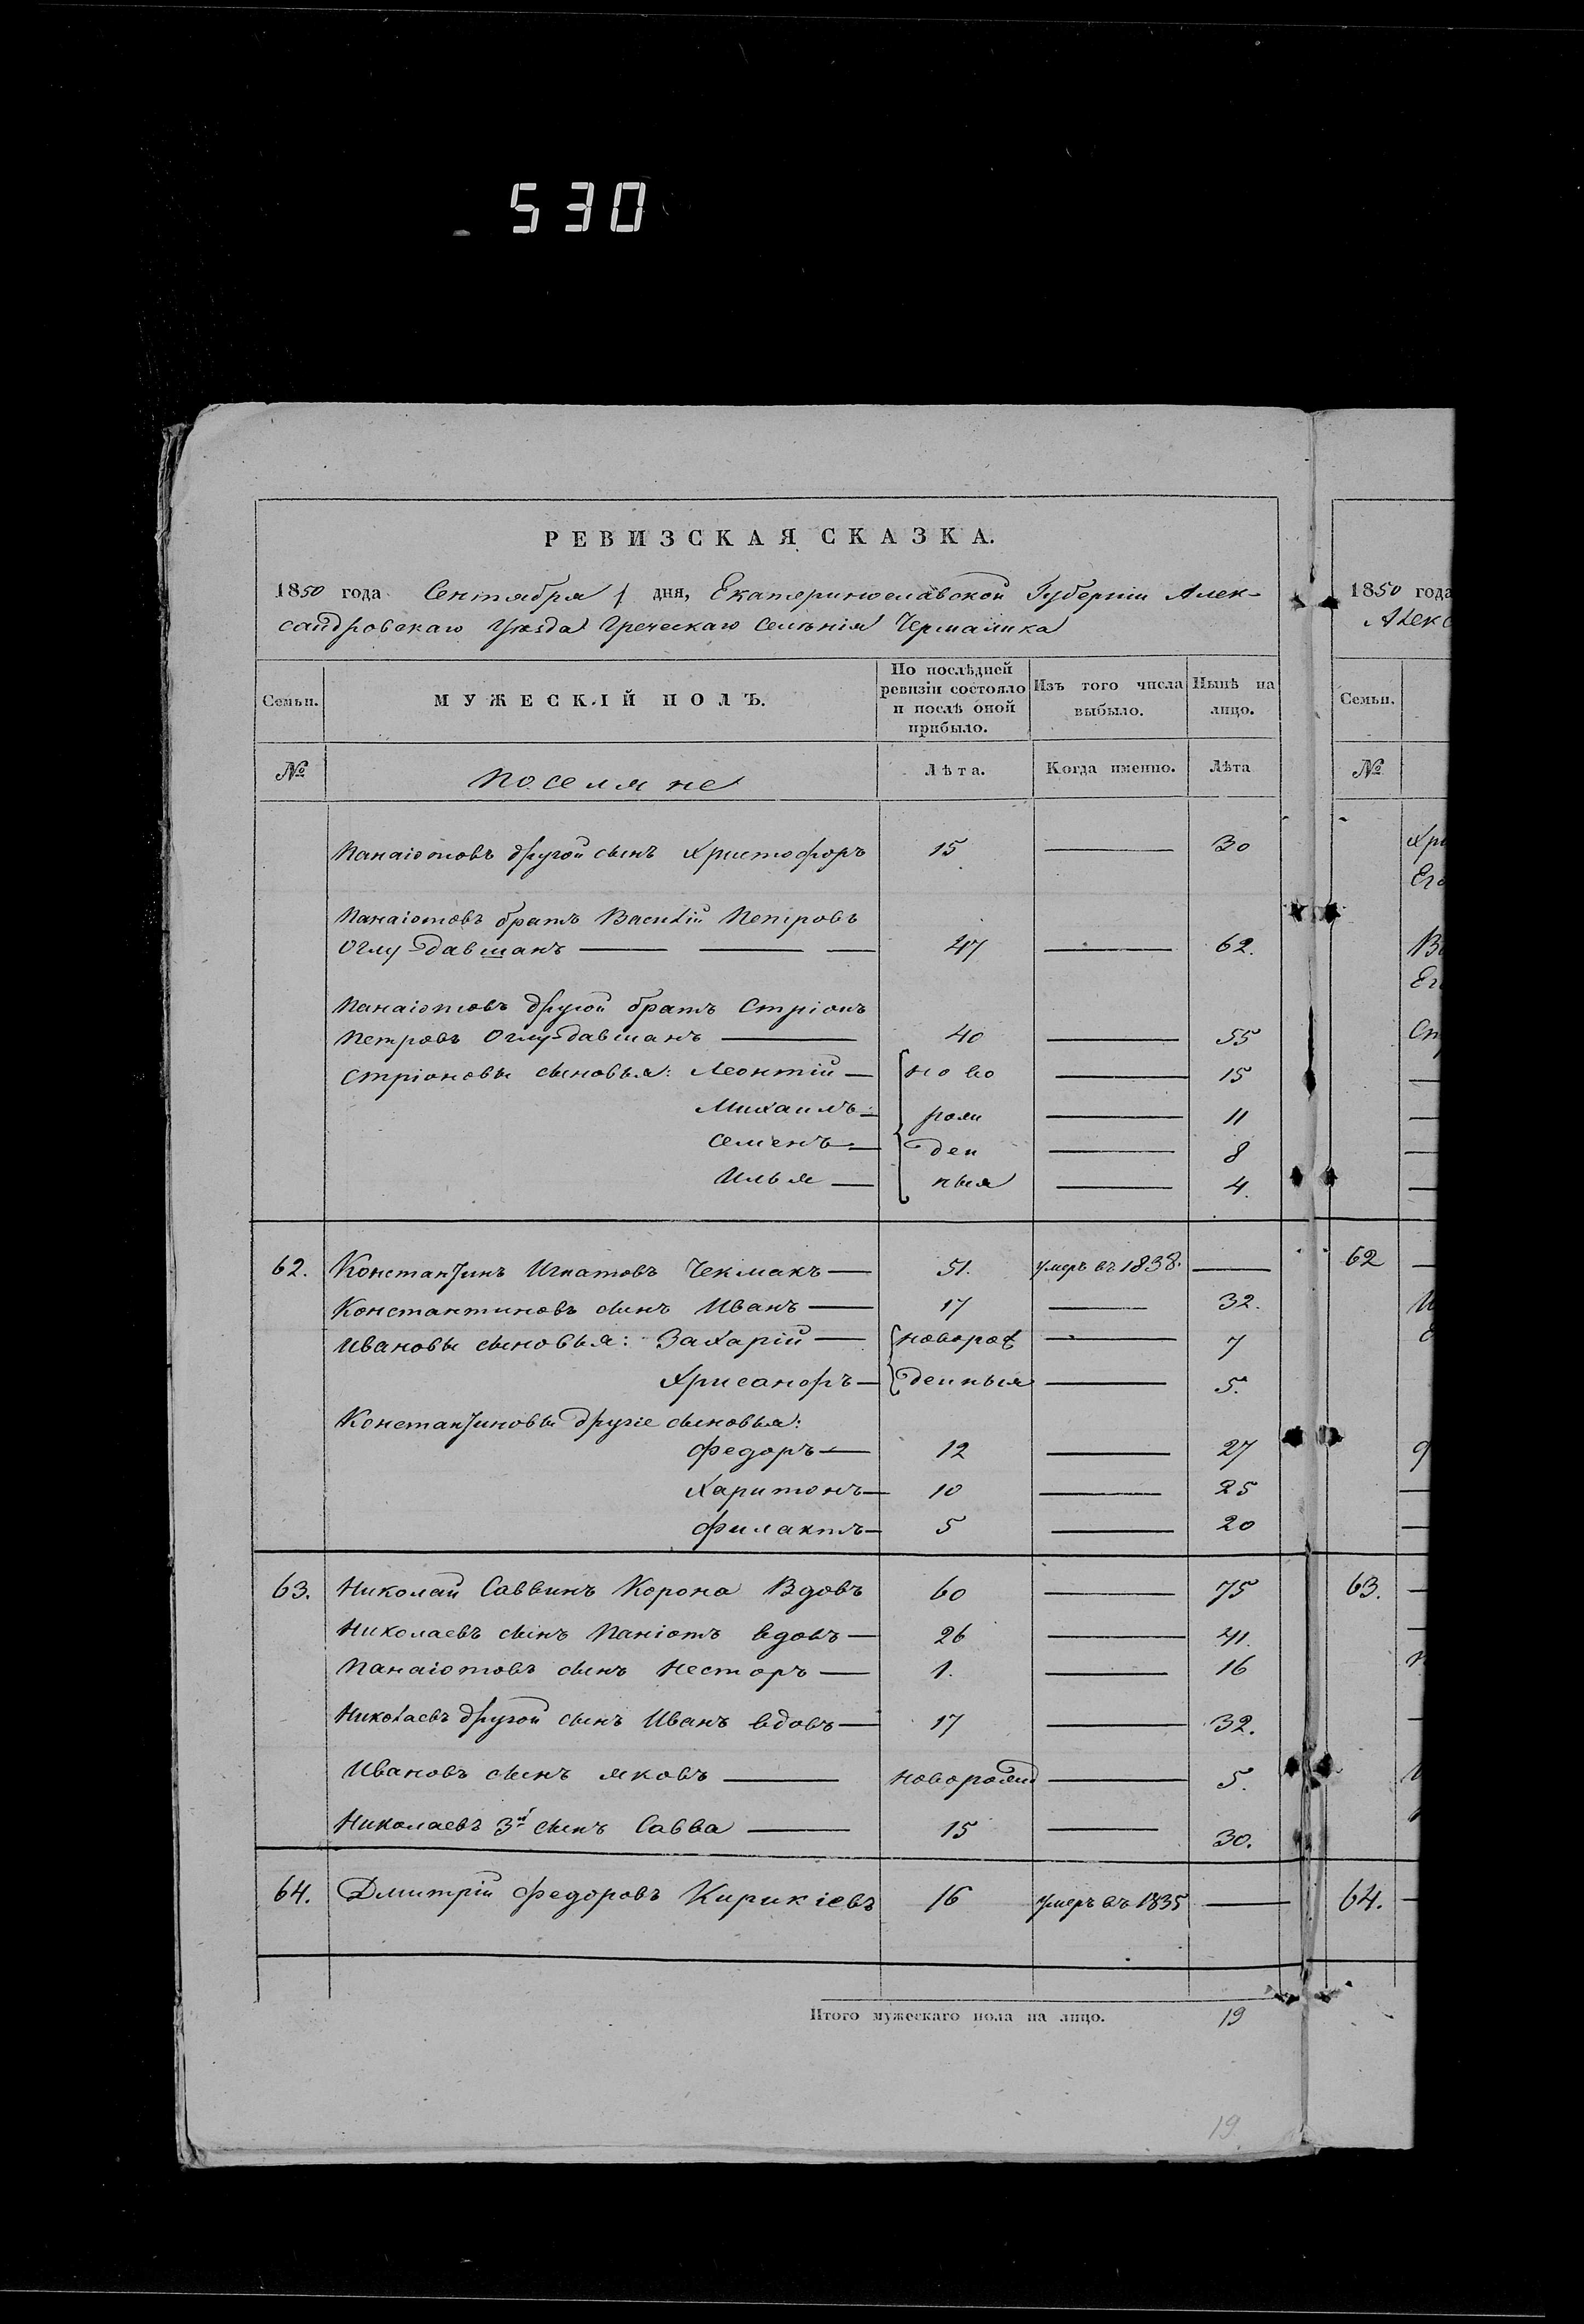 530
РЕВИЗСКАЯ СКАЗКА.
1850 года Сентября 1 дня, Екатеринославской Губерніи Алек-
сандровскаго Уѣзда Греческаго Селѣнія Чермалика
Семьи. МУЖЕСКІЙ ПОЛЪ. По послѣдней ревизіи состояло и послѣ оной прибыло. Изъ того числа выбыло. Нынѣ на лицо.
№ Поселяне Лѣта. Когда именно. Лѣта
Панаіотовъ другой сынъ Христофоръ 15 — 30
Панаіотовъ братъ Василій Петровъ
Оглу-Давшанъ — 47 — 62.
Панаіотовъ другой братъ Стріонъ
Петровъ Оглу-Давшанъ — 40 — 55
Стріоновы сыновья: Леонтій — ново — 15
Михаилъ — рож — 11
Семенъ — ден — 8
Илья — ныя — 4.
62. Константинъ Игнатовъ Чекмакъ — 51. умеръ въ 1838. —
Константиновъ сынъ Иванъ — 17 — 32.
Ивановы сыновья: Захарій — новорож — 7
Хрисанфъ — денныя — 5.
Константиновы другіе сыновья:
Федоръ — 12 — 27
Харитонъ — 10 — 25
Филактъ — 5 — 20
63. Николай Саввинъ Корона Вдовъ 60 — 75
Николаевъ сынъ Паніотъ вдовъ — 26 — 41.
Панаіотовъ сынъ Несторъ — 1. — 16
Николаевъ другой сынъ Иванъ вдовъ — 17 — 32.
Ивановъ сынъ Яковъ — новорожд — 5.
Николаевъ 3й сынъ Савва — 15 — 30.
64. Дмитрій Федоровъ Кирикіевъ 16 умеръ въ 1835 —
Итого мужескаго пола на лицо. 19
19
1850 года
Алекс
Семьи.
№
62
63.
64.